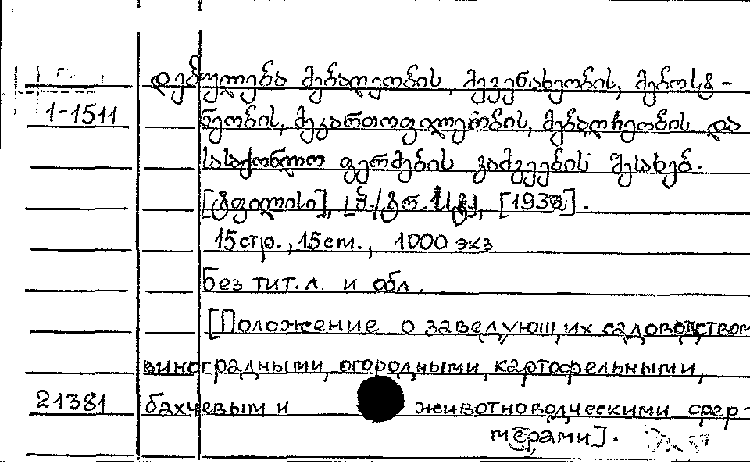 დებულება მებაღეობის, მევენახეობის, მებოსტ-
1-1511 ნეობის, მეკართოფილეობის, მებაღჩეობის და
სასაქონლო ფერმების გამგეების შესახებ.
[ტფილისი], [1933].
15стр., 15см., 1000 экз
Без тит.л. и обл.
[Положение о заведующих садоводством
виноградными, огородными, картофельными,
21381 бахчевым и животноводческими фер-
мерами].